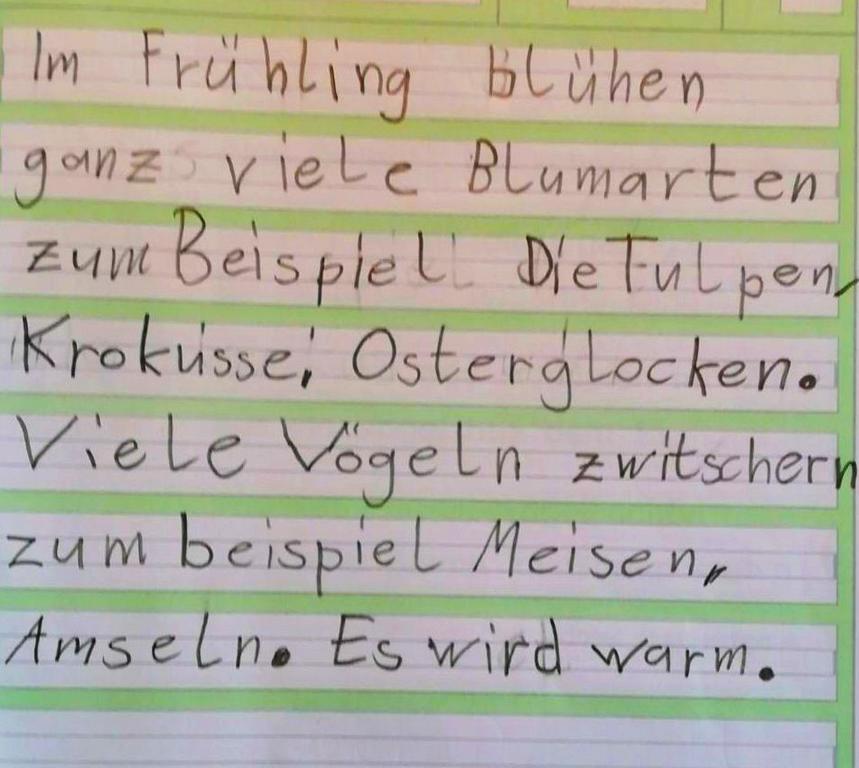 Im Frühling blühen
ganz viele Blumarten
zum Beispiel Die Tulpen,
Krokusse, Osterglocken.
Viele Vögeln zwitschern
zum beispiel Meisen,
Amseln. Es wird warm.